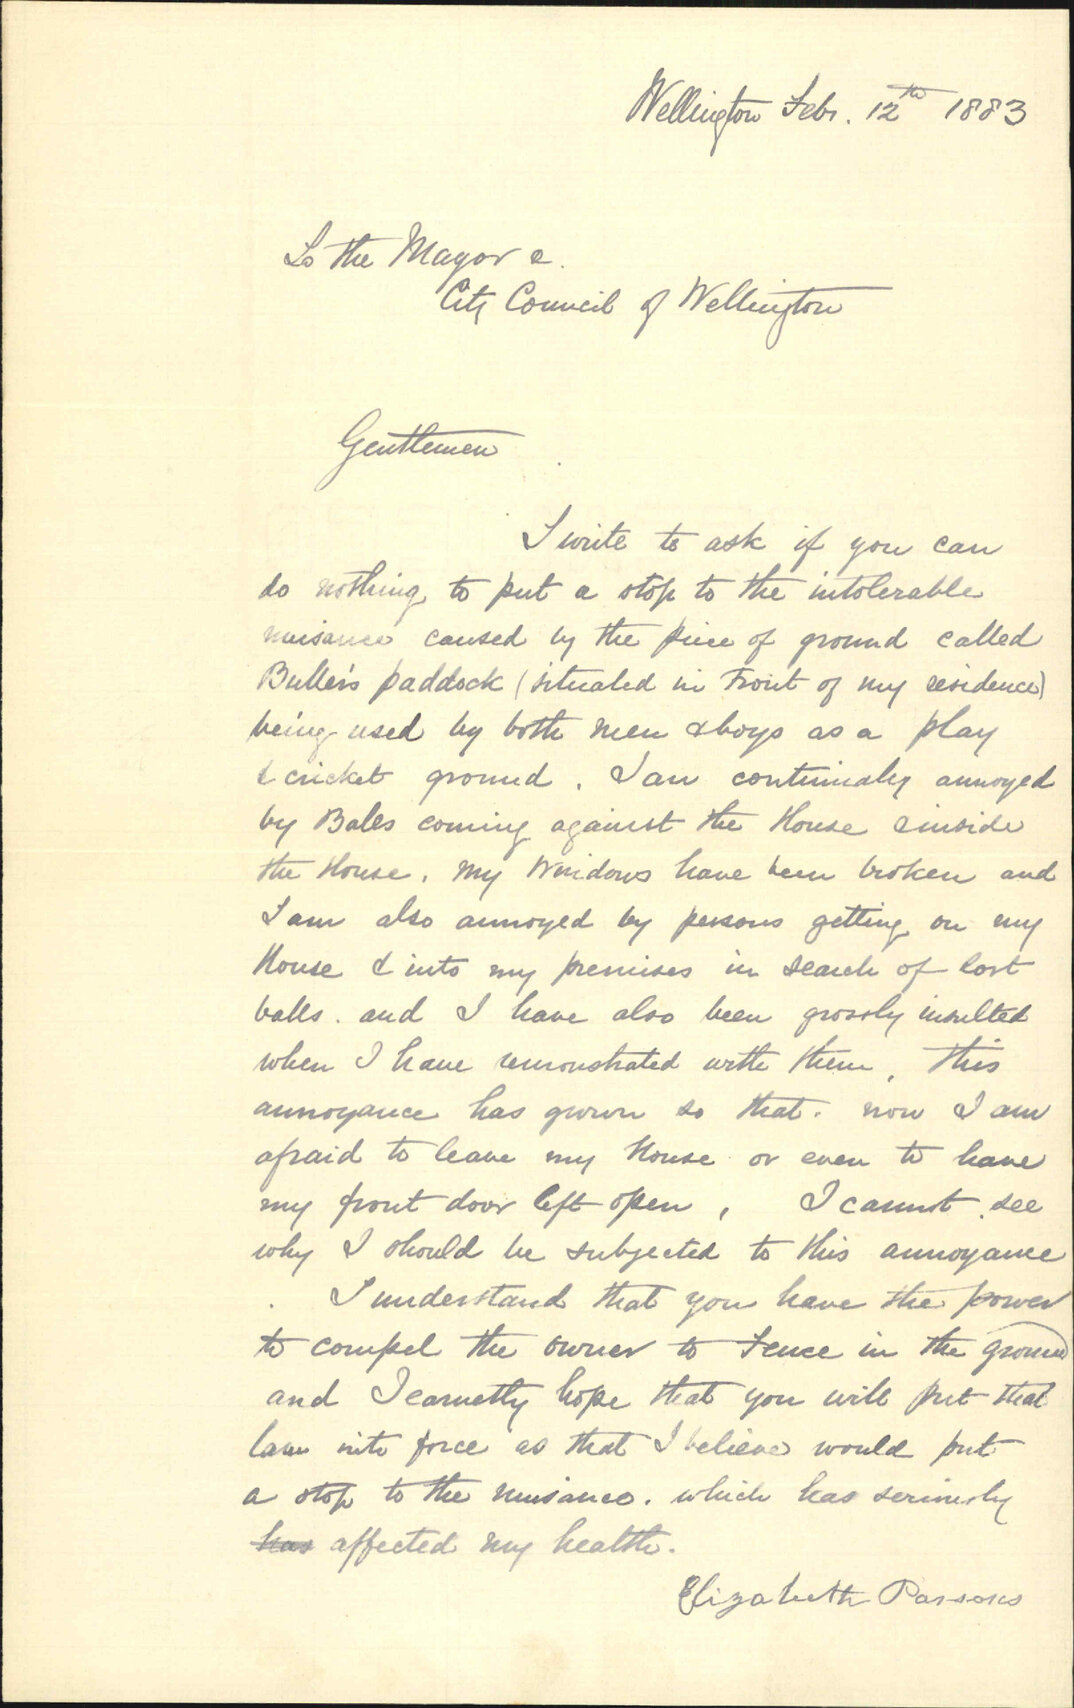 Wellington Febr. 12th 1883
To the Mayor &
City Council of Wellington
Gentlemen
I write to ask if you can
do nothing to put a stop to the intolerable
nuisance caused by the piece of ground called
Buller's paddock (situated in Front of my residence)
being used by both men & boys as a play
& cricket ground. I am continually annoyed
by Balls coming against the House & inside
the House. My Windows have been broken and
I am also annoyed by persons getting on my
House & into my premises in search of lost
balls. and I have also been grossly insulted
when I have remonstrated with them. This
annoyance has grown so that. now I am
afraid to leave my House or even to have
my front door left open, I cannot see
why I should be subjected to this annoyance
I understand that you have the power
to compel the owner to Fence in the ground
and I earnestly hope that you will put that
law into force as that I believe would put
a stop to the nuisance. which has seriously
has affected my health.
Elizabeth Parsons